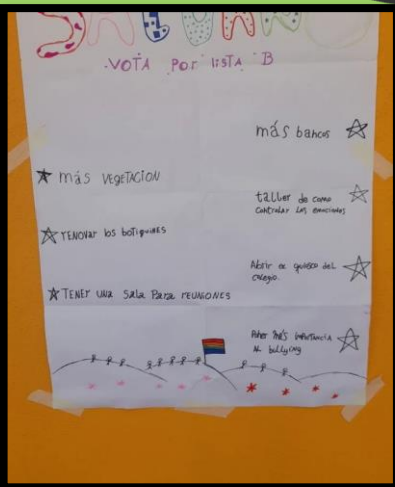 VOTA POR lISTA B
más bancos
más VEGETACION
taller de como
controlar las emociones
rENOVAr los boTiquines
Abrir el quiosco del
colegio.
TENER UNA Sala Para rEUNIONES
Poner más importancia
Al bullying